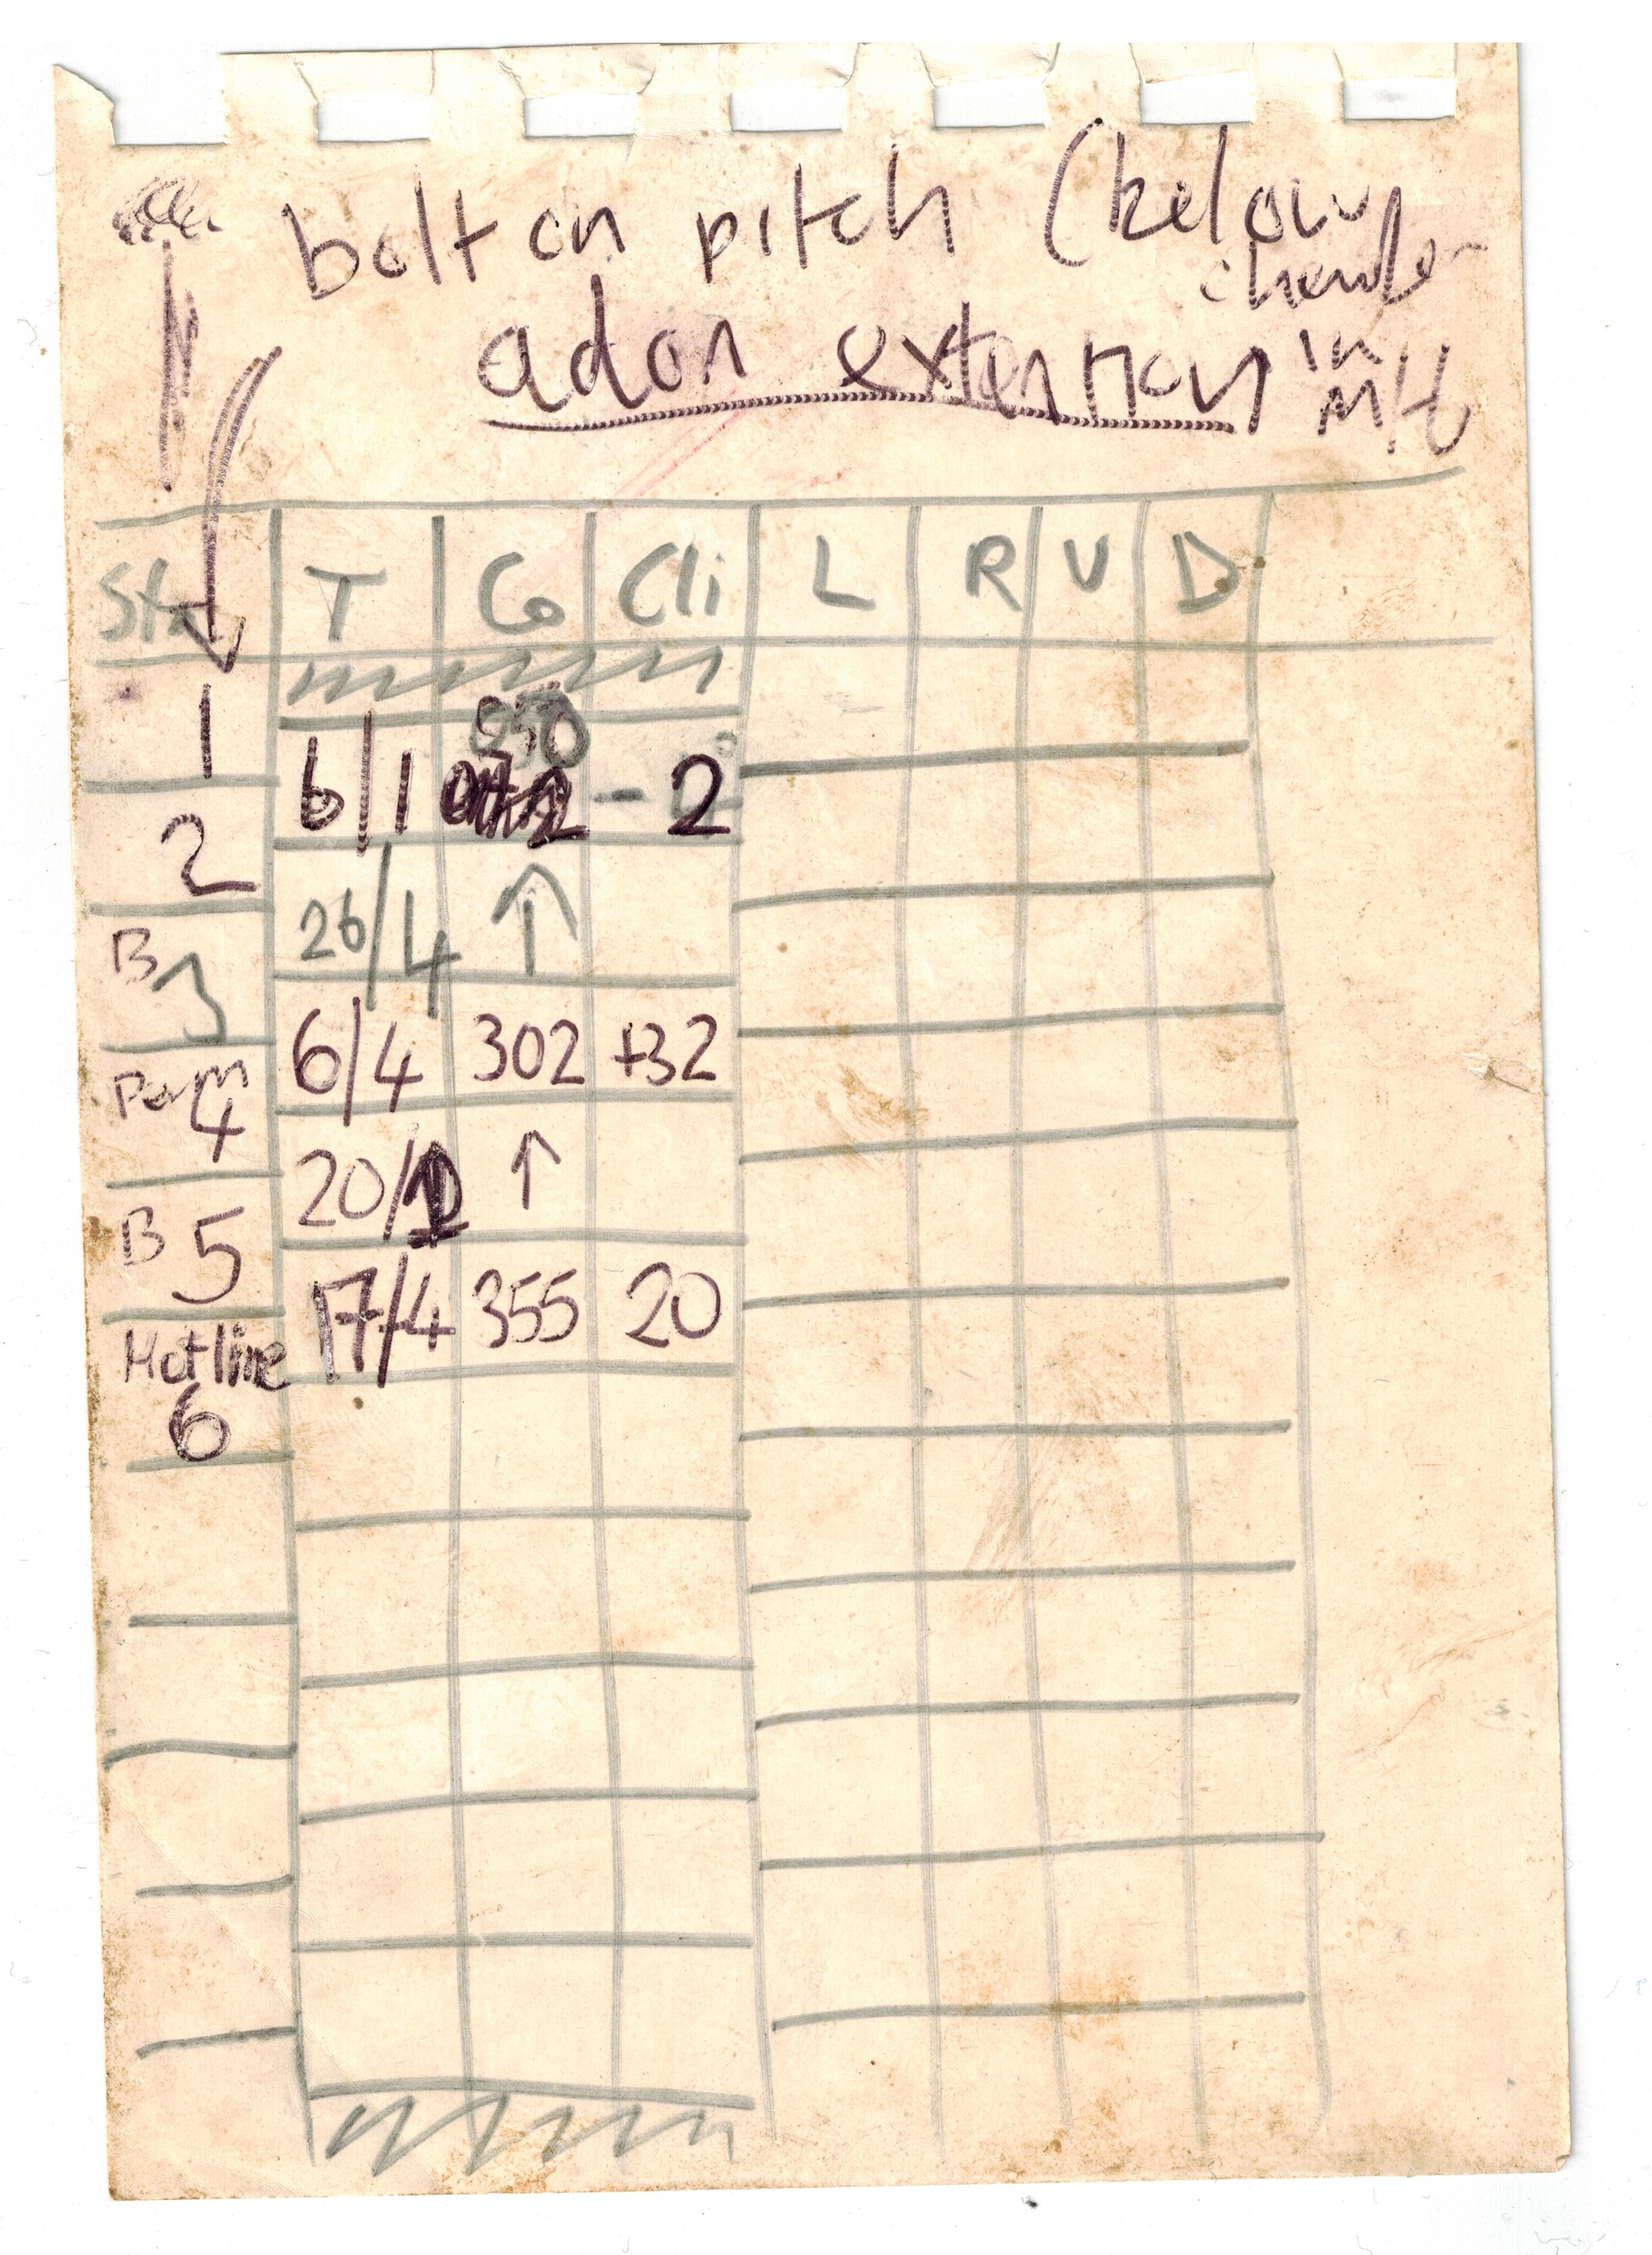 bolt on pitch (below
chamber
adon extension in
M/H
Stn T Co Cli L R U D
1
050
6/1 - 2
2
26/4 ↑
B
3
6/4 302 +32
Perm
4
20/ ↑
B 5
17/4 355 20
Hotline
6